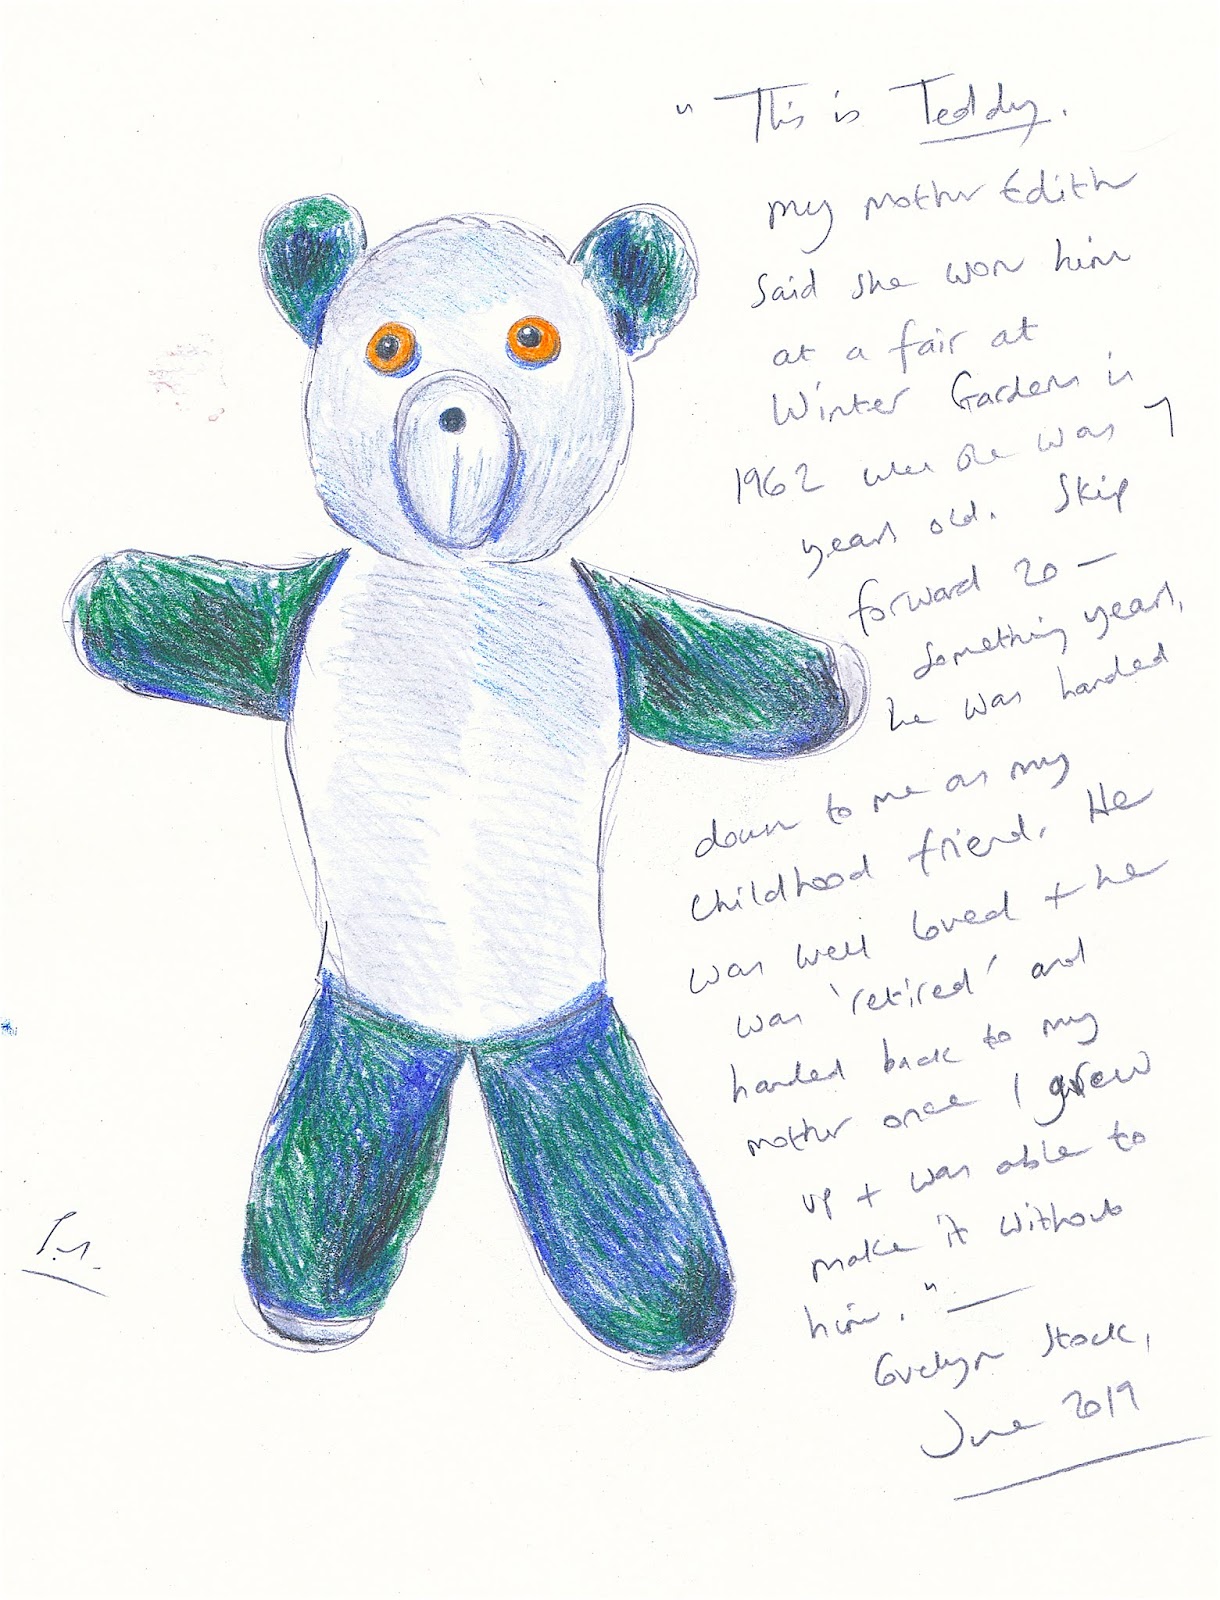 "This is Teddy.
my mother Edith
said she won him
at a fair at
Winter Gardens in
1962 when she was 7
years old. Skip
forward 20 –
something years,
he was handed
down to me as my
childhood friend. He
was well loved + he
was 'retired' and
handed back to my
mother once I grew
up + was able to
make it without
him." —
Evelyn Stock,
June 2019